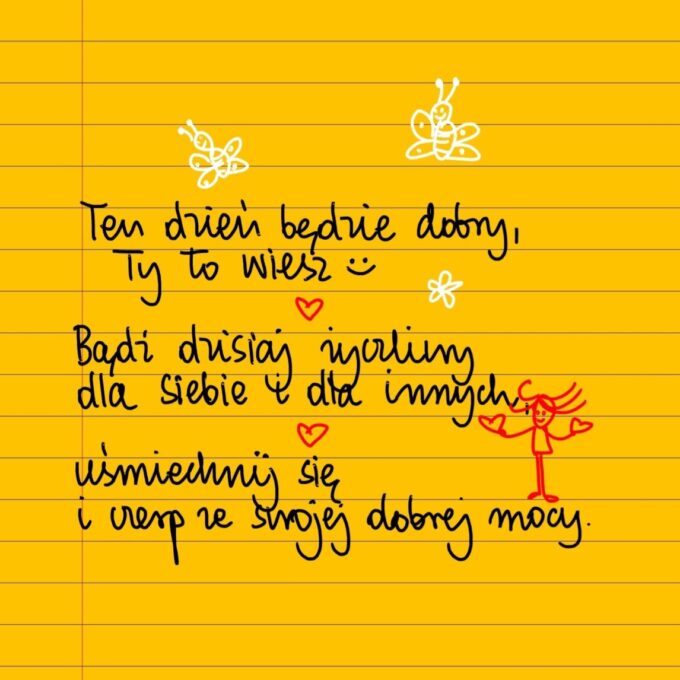 Ten dzień będzie dobry,
Ty to wiesz :)
Bądź dzisiaj życzliwy
dla siebie i dla innych,
uśmiechnij się
i czerp ze swojej dobrej mocy.